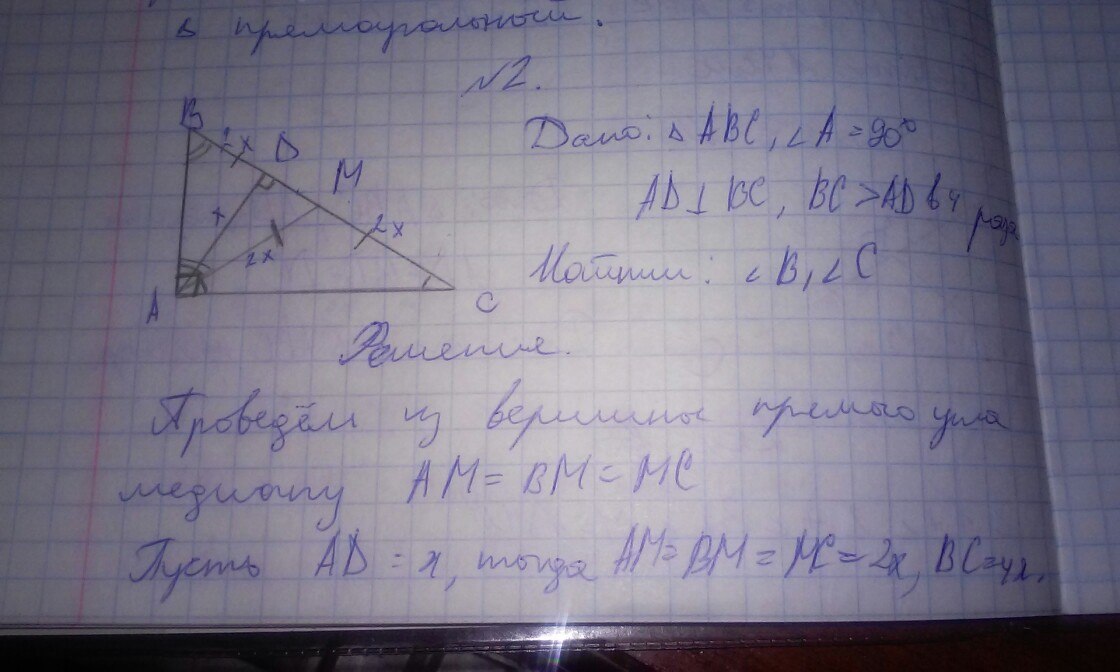 в прямоугольный.
№2.
B 2x D M 2x x 2x A C
Дано: ▵ ABC, ∠A = 90°
AD ⊥ BC, BC > AD в 4 раза
Найти: ∠B, ∠C
Решение.
Проведём из вершины прямого угла
медиану AM = BM = MC
Пусть AD = x, тогда AM = BM = MC = 2x, BC = 4x.